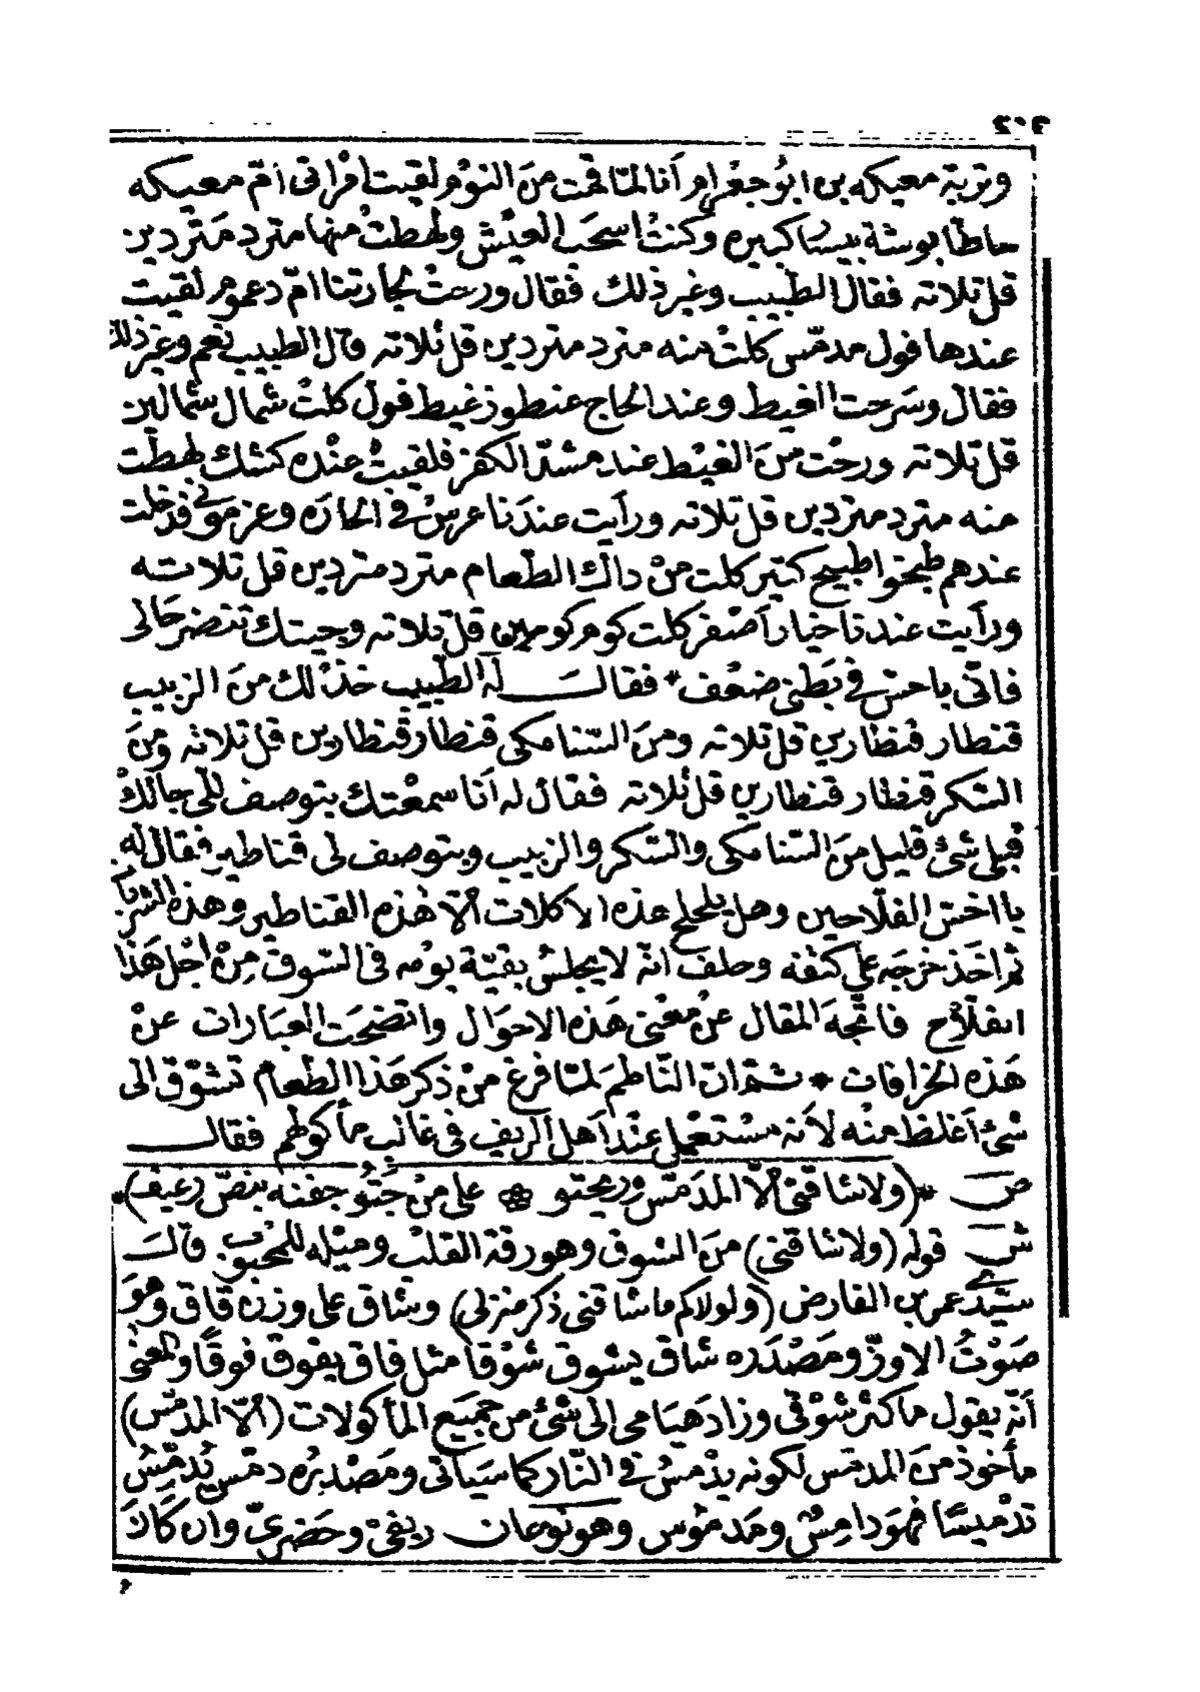 وتربة معيكه بن ابو جغرام أنا لما قمت من النوم لقيت امراتى ام معيكه
حاطا بوشة بيسار كبيره وكنت اسحب العيش ولهطت منها مترد متردين
قل تلاته فقال الطبيب وغير ذلك فقال ورحت لجارتنا ام دعموم لقيت
عندها فول مدمس كلت منه مترد متردين قل تلاته قال الطبيب نعم وغير ذلك
فقال وسرحت الغيط وعند الحاج عنطوز غيط فول كلت شمال شمالين
قل تلاته ورحت من الغيط عند مشد الكفر فلقيت عنده كشك لهطت
منه مترد متردين قل تلاته ورأيت عندنا عرس فى الحاره وعزمونى فدخلت
عندهم طبخوا طبيخ كتير كلت من داك الطعام مترد متردين قل تلاته
ورأيت عندنا خيار أصفر كلت كوم كومين قل تلاته وجيتك تنضر حالى
فانى باحس فى بطنى ضعف * فقال له الطبيب خذ لك من الزبيب
قنطار قنطارين قل تلاته ومن السنامكى قنطار قنطارين قل تلاته ومن
السكر قنطار قنطارين قل تلاته فقال له أنا سمعتك بتوصف للى جالك
قبلى شئ قليل من السنامكى والسكر والزبيب وبتوصف لى قناطير فقال له
يا اخس الفلاحين وهل يلحلح هذه الاكلات الا هذه القناطير وهذه الشربات
ثم اخذ خرجه على كتفه وحلف انه لا يجلس بقية يومه فى السوق من اجل هذا
الفلاح فاتجه المقال عن معنى هذه الاحوال واتضحت العبارات عن
هذه الخرافات * ثم ان الناظم لما فرغ من ذكر هذا الطعام تشوق الى
شئ أغلظ منه لأنه مستعمل عند أهل الريف فى غالب مأكولهم فقال
ص * (ولا شاقنى الا المدمس وريحتو * على من جتو جفنه بنص رغيف) *
ش قوله (ولا شاقنى) من الشوق وهو رقة القلب وميله للمحبوب قال
سيدى عمر بن الفارض (ولولاكم ما شاقنى ذكر منزلى) وشاق على وزن قاق وهو
صوت الاوز ومصدره شاق يشوق شوقا مثل فاق يفوق فوقا والمعنى
أنه يقول ما كثر شوقى وزاد هيامى الى شئ من جميع المأكولات (الا المدمس)
مأخوذ من المدمس لكونه يدمس فى النار كما سيأتى ومصدره دمس يدمس
تدميسا فهو دامس ومدموس وهو نوعان ريفى وحضرى وان كان